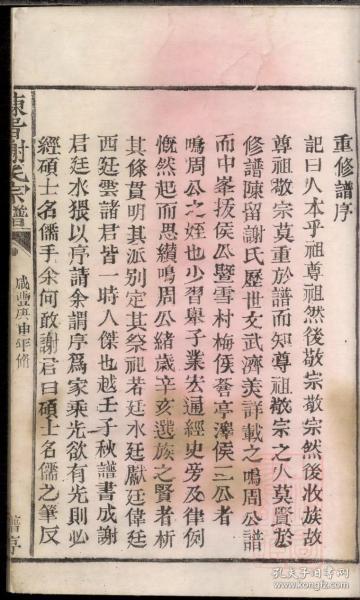 重修譜序
記曰人本乎祖尊祖然後敬宗敬宗然後收族故
尊祖敬宗莫重於譜而知尊祖敬宗之人莫賢於
修譜陳留謝氏歷世文武濟美詳載之鳴周公譜
而中峯拔侯公暨雪村梅侯薈亭澤侯三公者
鳴周公之姪也少習舉子業大通經史旁及律例
慨然起而思纘鳴周公緒歲辛亥選族之賢者析
其條貫明其派別定其祭祀若廷水廷獻廷偉廷
西廷雲諸君皆一時人傑也越壬子秋譜書成謝
君廷水猥以序請余謂序爲家乘光欲有光則必
經碩士名儒手余何敢謝君曰碩士名儒之筆反
陳留謝氏宗譜
咸豐庚申年修
譜序
孔夫子旧书网